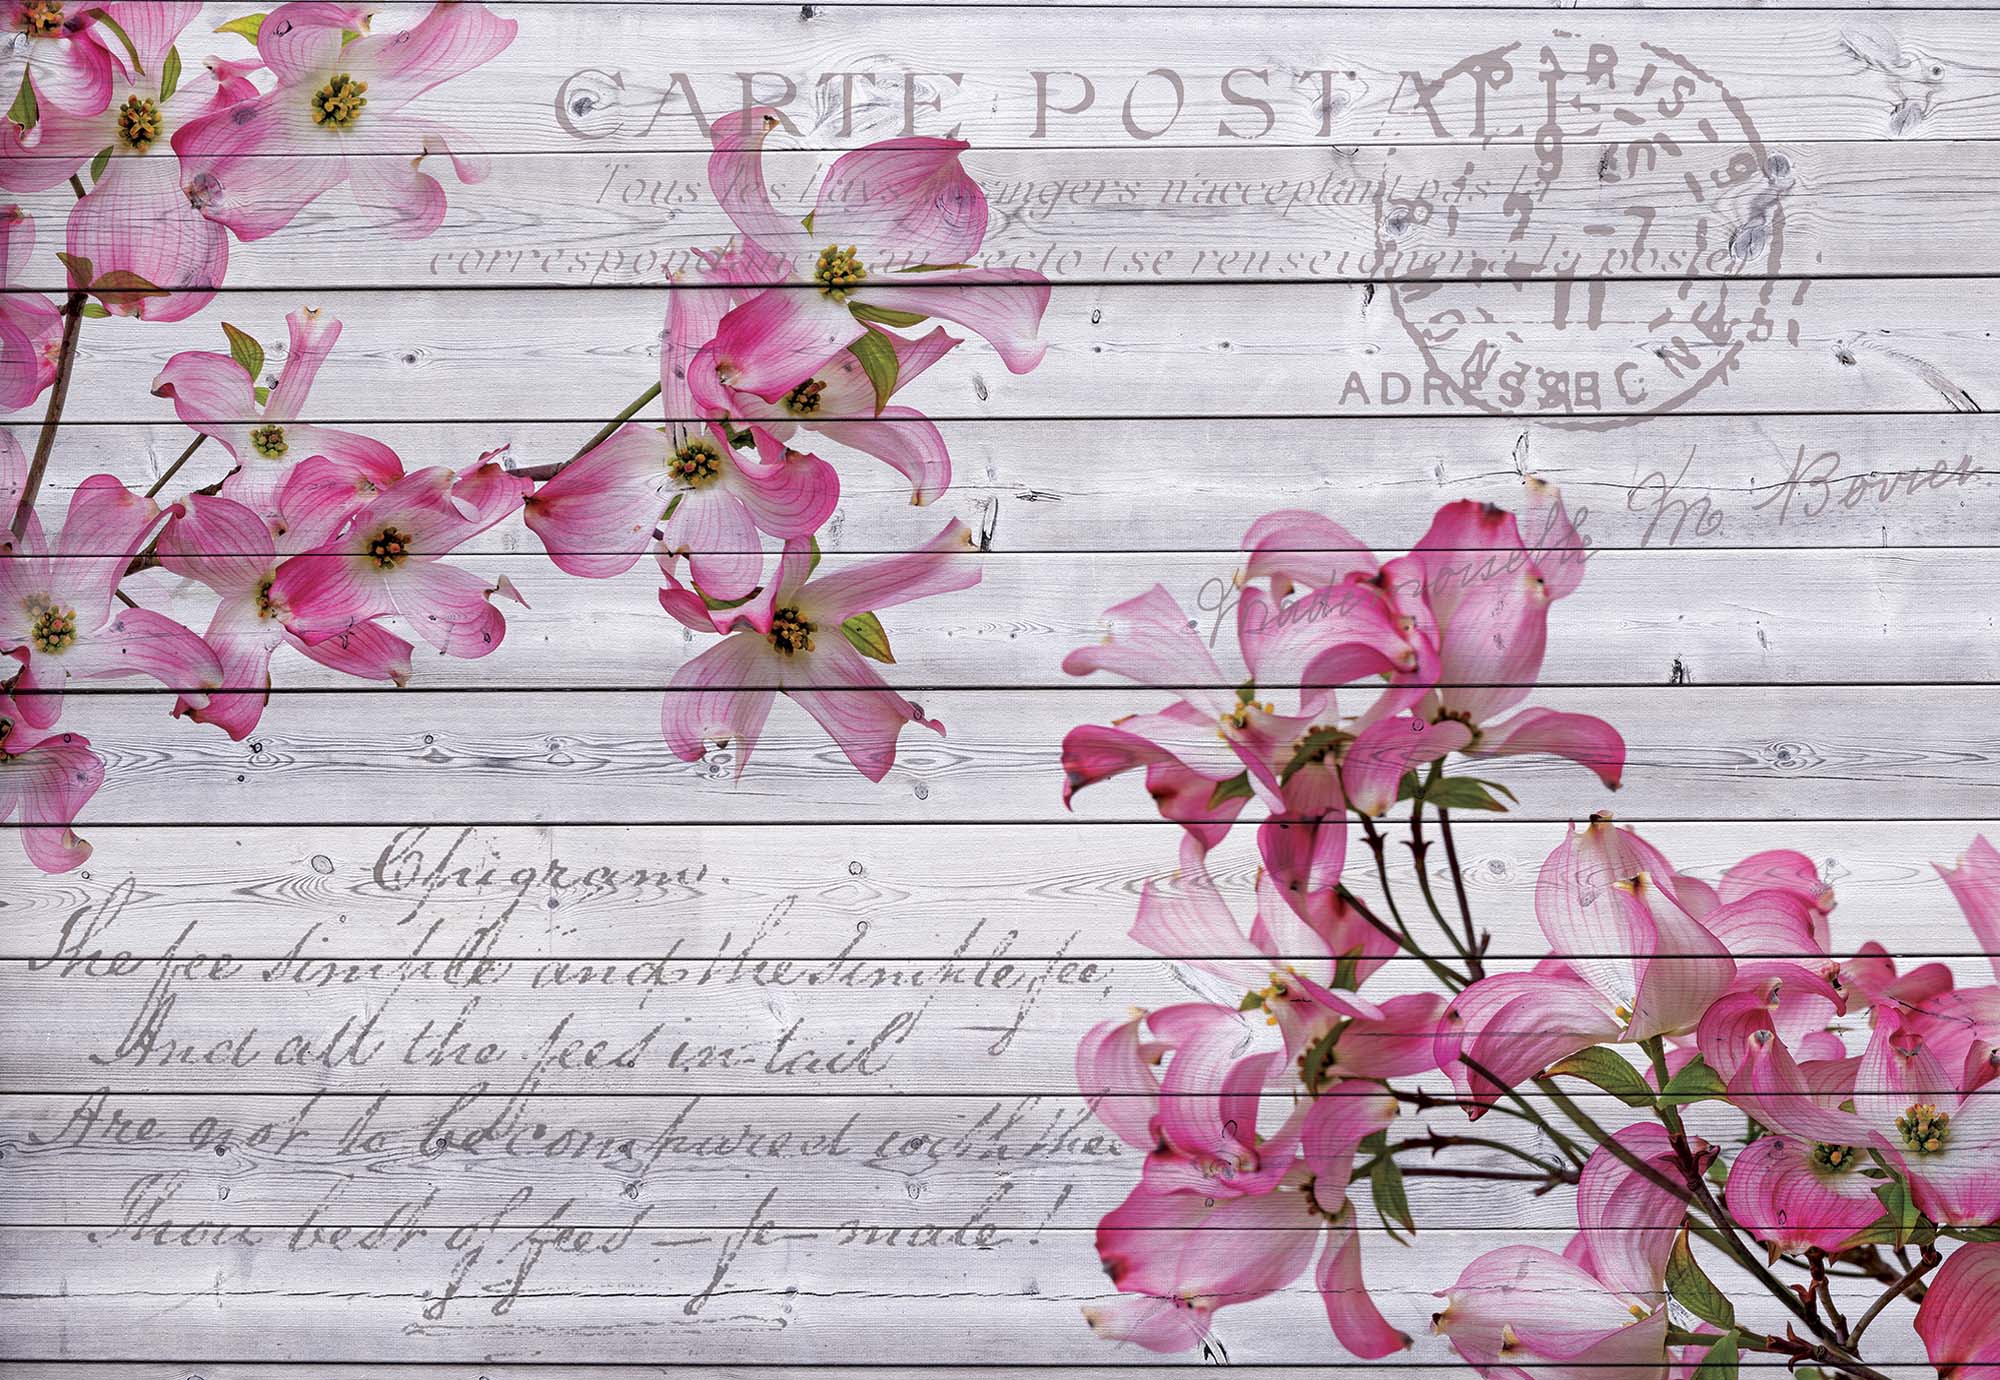 CARTE POSTALE
Tous les Pays étrangers n'acceptant pas la
correspondance au recto (se renseigner à la poste)
PARIS
7 - 7
11
ADRESSE
Mademoiselle M. Bovier
Epigram.
The fee simple and the simple fee,
And all the fees in tail
Are not to be compared with thee
Thou best of fees – fe – male!